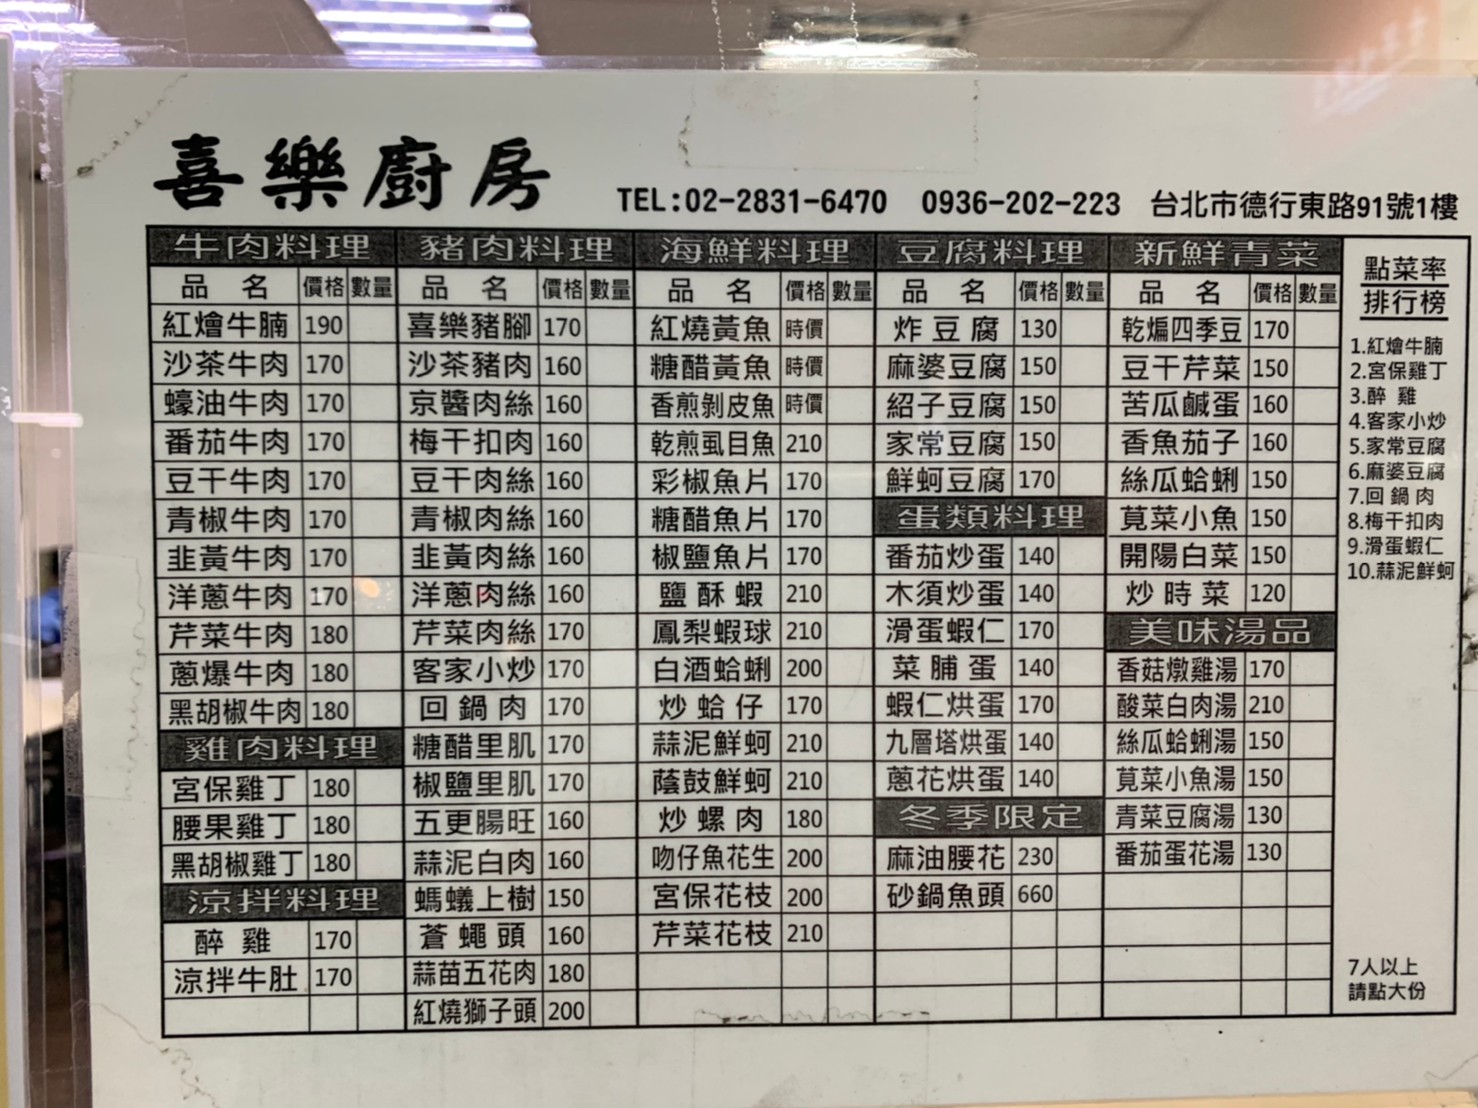 喜樂廚房
TEL:02-2831-6470 0936-202-223 台北市德行東路91號1樓
牛肉料理
品 名 價格 數量
紅燴牛腩 190
沙茶牛肉 170
蠔油牛肉 170
番茄牛肉 170
豆干牛肉 170
青椒牛肉 170
韭黃牛肉 170
洋蔥牛肉 170
芹菜牛肉 180
蔥爆牛肉 180
黑胡椒牛肉 180
雞肉料理
宮保雞丁 180
腰果雞丁 180
黑胡椒雞丁 180
涼拌料理
醉雞 170
涼拌牛肚 170
豬肉料理
品 名 價格 數量
喜樂豬腳 170
沙茶豬肉 160
京醬肉絲 160
梅干扣肉 160
豆干肉絲 160
青椒肉絲 160
韭黃肉絲 160
洋蔥肉絲 160
芹菜肉絲 170
客家小炒 170
回鍋肉 170
糖醋里肌 170
椒鹽里肌 170
五更腸旺 160
蒜泥白肉 160
螞蟻上樹 150
蒼蠅頭 160
蒜苗五花肉 180
紅燒獅子頭 200
海鮮料理
品 名 價格 數量
紅燒黃魚 時價
糖醋黃魚 時價
香煎剝皮魚 時價
乾煎虱目魚 210
彩椒魚片 170
糖醋魚片 170
椒鹽魚片 170
鹽酥蝦 210
鳳梨蝦球 210
白酒蛤蜊 200
炒蛤仔 170
蒜泥鮮蚵 210
蔭鼓鮮蚵 210
炒螺肉 180
吻仔魚花生 200
宮保花枝 200
芹菜花枝 210
豆腐料理
品 名 價格 數量
炸豆腐 130
麻婆豆腐 150
紹子豆腐 150
家常豆腐 150
鮮蚵豆腐 170
蛋類料理
番茄炒蛋 140
木須炒蛋 140
滑蛋蝦仁 170
菜脯蛋 140
蝦仁烘蛋 170
九層塔烘蛋 140
蔥花烘蛋 140
冬季限定
麻油腰花 230
砂鍋魚頭 660
新鮮青菜
品 名 價格 數量
乾煸四季豆 170
豆干芹菜 150
苦瓜鹹蛋 160
香魚茄子 160
絲瓜蛤蜊 150
莧菜小魚 150
開陽白菜 150
炒時菜 120
美味湯品
香菇燉雞湯 170
酸菜白肉湯 210
絲瓜蛤蜊湯 150
莧菜小魚湯 150
青菜豆腐湯 130
番茄蛋花湯 130
點菜率
排行榜
1.紅燴牛腩
2.宮保雞丁
3.醉 雞
4.客家小炒
5.家常豆腐
6.麻婆豆腐
7.回鍋肉
8.梅干扣肉
9.滑蛋蝦仁
10.蒜泥鮮蚵
7人以上
請點大份